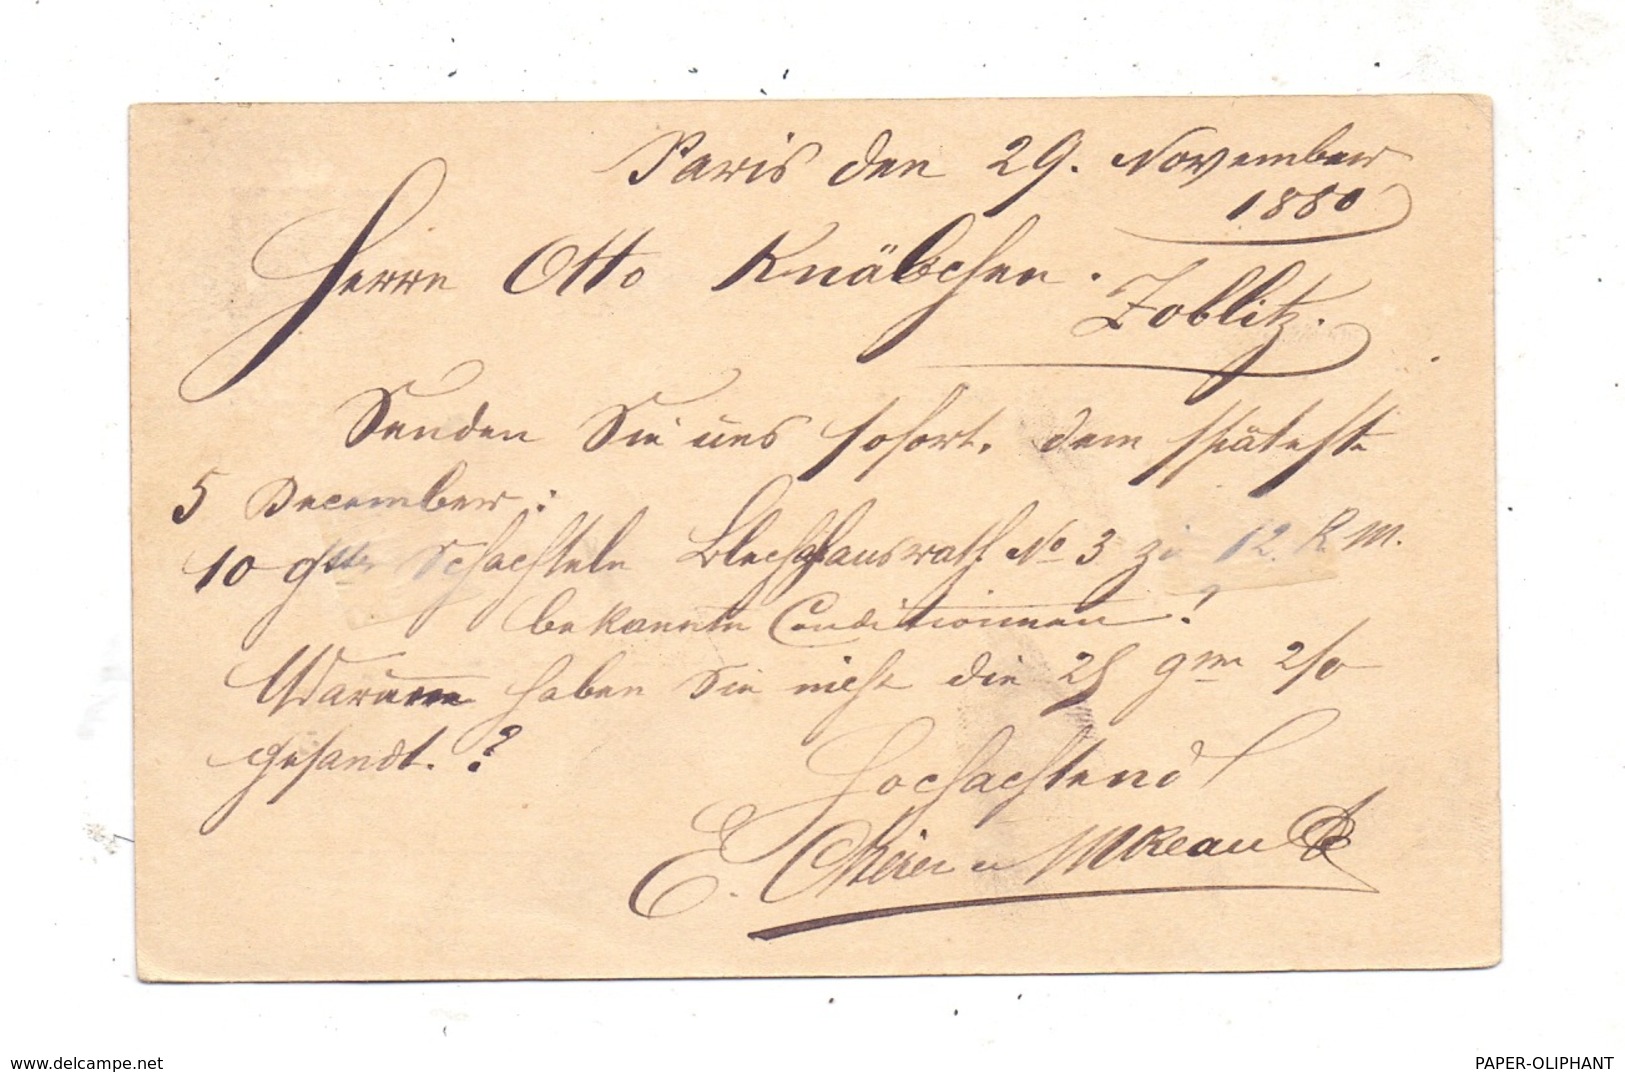 Paris den 29. November
1880
Herrn Otto Knäbchen.
Zoblitz.
Senden Sie uns sofort. dem späteste
5 December:
10 Schachteln Blechhausrath No 3 zu 12. R M.
bekannte Conditionnen!
Warum haben Sie nicht die 25 2/0
gesandt.?
Hochachtend
E.
delcampe.net
PAPER-OLIPHANT